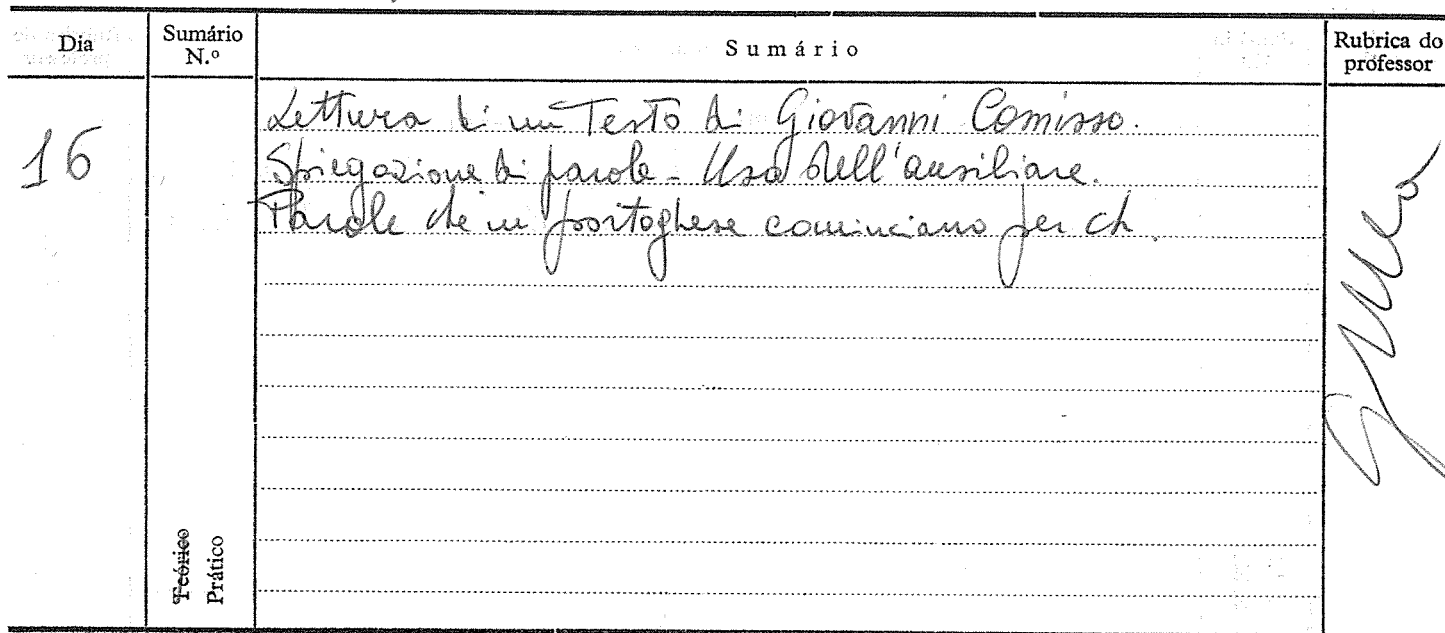 Dia
Sumário
N.º
Sumário
Rubrica do
professor
16
Lettura di un Testo di Giovanni Comisso.
Spiegazione di parole - Uso dell'ausiliare.
Parole che in portoghese cominciano per ch.
Teórico
Prático